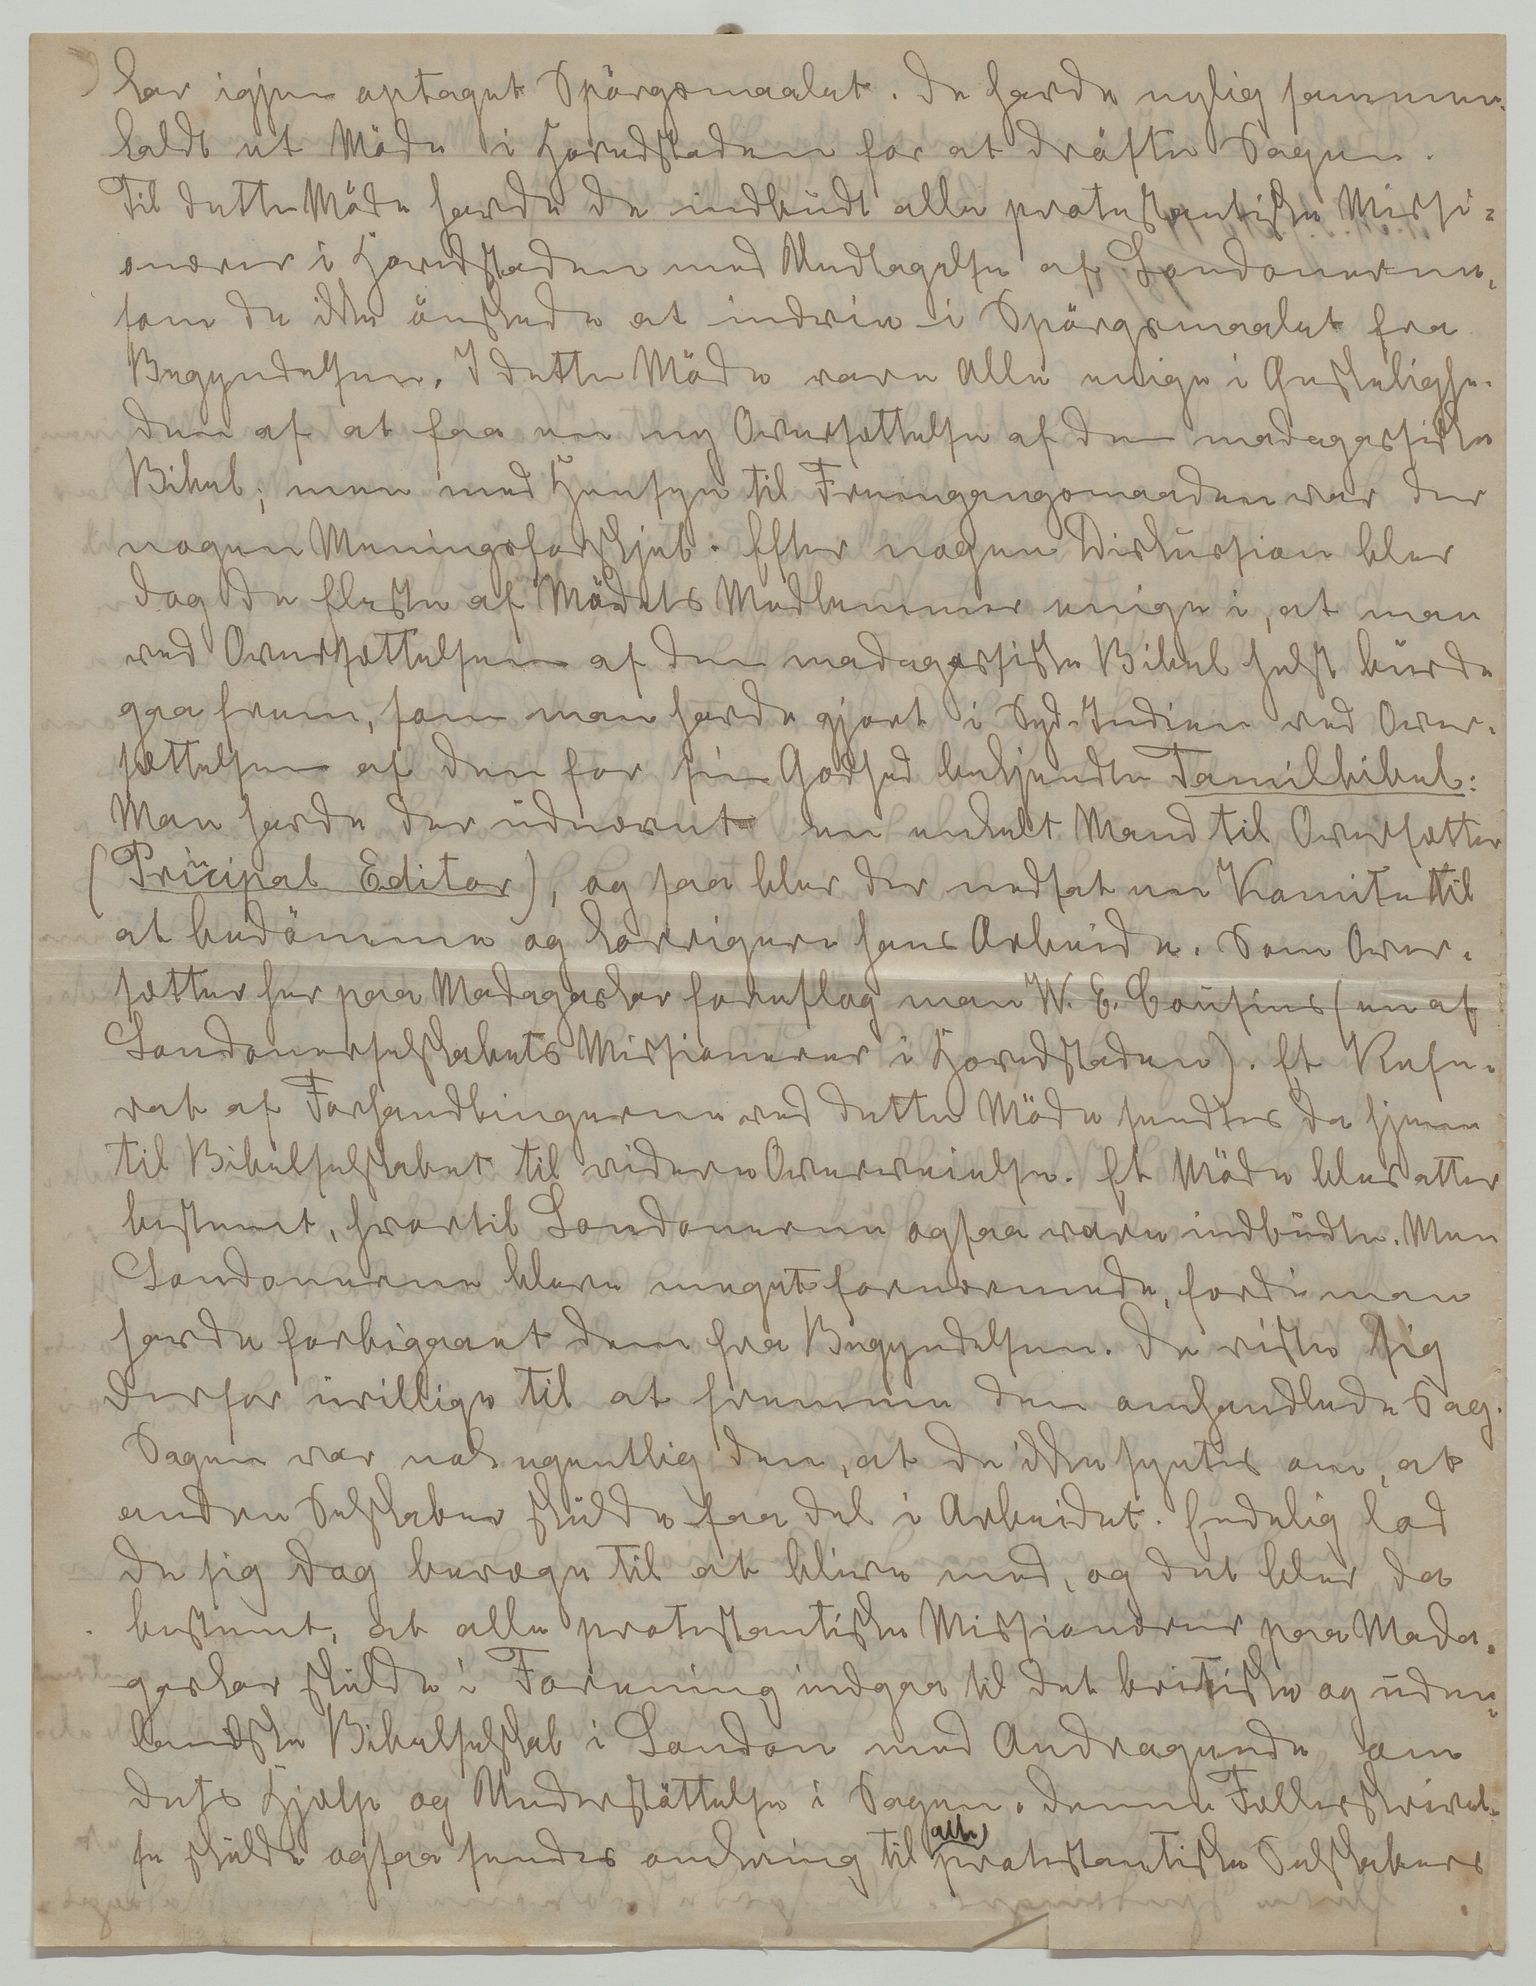 har igjen optaget Spörgsmaalet. De havde nylig sammen-
kaldt et Möde i Hovedstaden for at dröfte Sagen.
Til dette Möde havde de indbudt alle protestantiske Missi-
onærer i Hovedstaden med Undtagelse af Londonerne,
som de ikke önskede at indvie i Spörgsmaalet fra
Begyndelsen. I dette Möde vare Alle enige i Önskelighe-
den af at faa en ny Oversættelse af den madagassiske
Bibel; men med Hensyn til Fremgangsmaaden var der
nogen Meningsforskjel. Efter nogen Diskussion blev
dog de fleste af Mödets Medlemmer enige i, at man
ved Oversættelsen af den madagassiske Bibel helst burde
gaa frem, som man havde gjort i Syd-Indien ved Over-
sættelsen af den for sin Godhed bekjendte Tamilbibel:
Man havde der udnævnt en enkelt Mand til Oversætter
(Pricipal Editor), og saa blev der nedsat en Komite til
at bedömme og korrigere hans Arbeide. Som Over-
sætter her paa Madagaskar foreslog man W. E. Cousins (en af
Londonerselskabets Missionærer i Hovedstaden). Et Refe-
rat af Forhandlingerne ved dette Möde sendtes da hjem
til Bibelselskabet til videre Overveielse. Et Möde blev atter
bestemt, hvortil Londonerne ogsaa vare indbudte. Men
Londonerne bleve meget fornærmede, fordi man
havde forbigaaet dem fra Begyndelsen. De viste sig
derfor uvillige til at fremme den omhandlede Sag.
Sagen var nok egentlig den, at de ikke syntes om, at
andre Selskaber skulde faa Del i Arbeidet. Endelig lod
de sig dog bevæge til at blive med, og det blev da
bestemt, at alle protestantiske Missionærer paa Mada-
gaskar skulde i Forening indgaa til det britiske og uden-
landske Bibelselskab i London med Andragende om
dets Hjælp og Understöttelse i Sagen. Denne Fællesskrivel-
se skulde ogsaa sendes omkring til alle protestantiske Selskabers